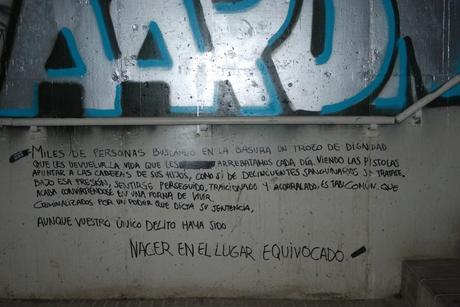 AARD
MILES DE PERSONAS BUSCANDO EN LA BASURA UN TROZO DE DIGNIDAD
QUE LES DEVUELVA LA VIDA QUE LES ARREBATAMOS CADA DÍA VIENDO LAS PISTOLAS
APUNTAR A LAS CABEZAS DE SUS HIJOS, COMO SI DE DELINCUENTES SANGUINARIOS SE TRATASE,
BAJO ESA PRESIÓN, SENTIRSE PERSEGUIDO, TRAICIONADO Y ACORRALADO, ES TAN COMÚN QUE
ACABA CONVIRTIÉNDOSE EN UNA FORMA DE VIVIR
CRIMINALIZADOS POR UN PODER QUE DICTA SU SENTENCIA,
AUNQUE VUESTRO ÚNICO DELITO HAYA SIDO
NACER EN EL LUGAR EQUIVOCADO.